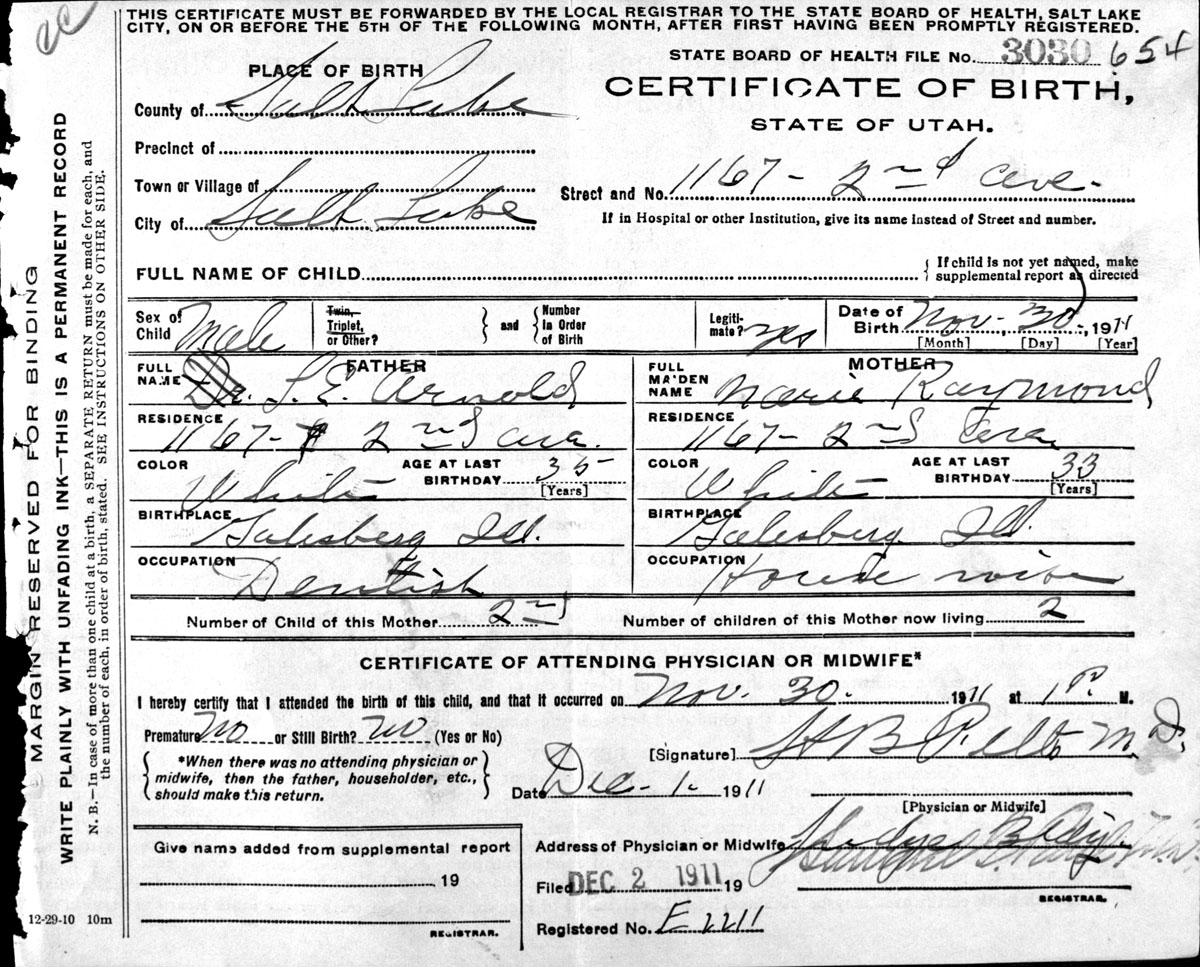 cc
THIS CERTIFICATE MUST BE FORWARDED BY THE LOCAL REGISTRAR TO THE STATE BOARD OF HEALTH, SALT LAKE
CITY, ON OR BEFORE THE 5TH OF THE FOLLOWING MONTH, AFTER FIRST HAVING BEEN PROMPTLY REGISTERED.
STATE BOARD OF HEALTH FILE No. 3030 654
PLACE OF BIRTH
CERTIFICATE OF BIRTH,
STATE OF UTAH.
County of Salt Lake
Precinct of
Town or Village of
Street and No. 1167 - 2nd ave.
City of Salt Lake
If in Hospital or other Institution, give its name instead of Street and number.
FULL NAME OF CHILD
If child is not yet named, make
supplemental report as directed
Sex of Child Male
Twin, Triplet, or Other?
and
Number In Order of Birth
Legiti-mate? yes
Date of Birth Nov. 30, 1911
[Month] [Day] [Year]
FATHER
FULL NAME Dr. L. E. Arnold
MOTHER
FULL MAIDEN NAME Marie Raymond
RESIDENCE 1167 - 2nd ave.
RESIDENCE 1167 - 2nd ave
COLOR White
AGE AT LAST BIRTHDAY 35 [Years]
COLOR White
AGE AT LAST BIRTHDAY 33 [Years]
BIRTHPLACE Galesberg Ill.
BIRTHPLACE Galesberg Ill
OCCUPATION Dentist
OCCUPATION House wife
Number of Child of this Mother 2nd
Number of children of this Mother now living 2
CERTIFICATE OF ATTENDING PHYSICIAN OR MIDWIFE*
I hereby certify that I attended the birth of this child, and that it occurred on Nov. 30. 1911 at 1 P. M.
Premature No or Still Birth? no (Yes or No)
[Signature] M.D.
*When there was no attending physician or
midwife, then the father, householder, etc.,
should make this return.
Date Dec. 1. 1911
[Physician or Midwife]
Give name added from supplemental report
19
REGISTRAR.
Address of Physician or Midwife
Filed DEC 2 1911 19
REGISTRAR.
Registered No. E 2211
12-29-10 10m
MARGIN RESERVED FOR BINDING
WRITE PLAINLY WITH UNFADING INK—THIS IS A PERMANENT RECORD
N. B.—In case of more than one child at a birth, a SEPARATE RETURN must be made for each, and
the number of each, in order of birth, stated. SEE INSTRUCTIONS ON OTHER SIDE.